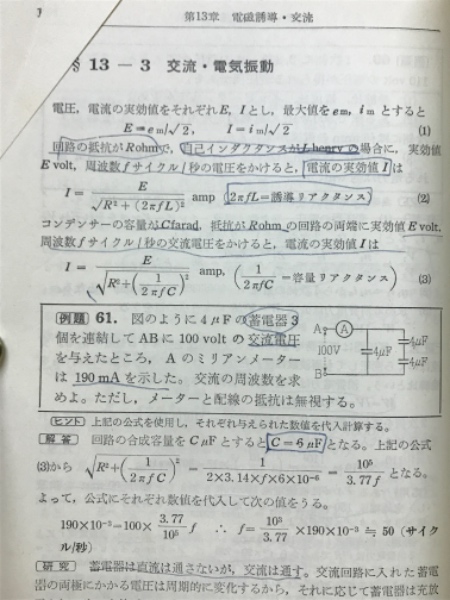 第13章 電磁誘導・交流
§ 13 — 3 交流・電気振動
電圧,電流の実効値をそれぞれE, Iとし,最大値をem, imとすると
E=em/√2, I=im/√2 (1)
回路の抵抗がRohmで,自己インダクタンスがLhenryの場合に,実効値
E volt, 周波数fサイクル/秒の電圧をかけると,電流の実効値Iは
I = E/√R²+(2πfL)² amp (2πfL=誘導リアクタンス) (2)
コンデンサーの容量がCfarad, 抵抗がRohmの回路の両端に実効値E volt,
周波数fサイクル/秒の交流電圧をかけると,電流の実効値Iは
I = E/√R²+(1/2πfC)² amp, (1/2πfC=容量リアクタンス) (3)
例題 61. 図のように4μFの蓄電器3
個を連結してABに100 voltの交流電圧
を与えたところ,Aのミリアンメーター
は190mAを示した。交流の周波数を求
めよ。ただし,メーターと配線の抵抗は無視する。
A A
100V 4μF 4μF
B 4μF
ヒント 上記の公式を使用し,それぞれ与えられた数値を代入計算する。
解答 回路の合成容量をCμFとするとC=6μFとなる。上記の公式
(3)から √R²+(1/2πfC)² = 1/2×3.14×f×6×10⁻⁶ = 10⁵/3.77f となる。
よって,公式にそれぞれ数値を代入して次の値をうる。
190×10⁻³=100×3.77/10⁵ f ∴ f=10⁵/3.77 ×190×10⁻³ ≒ 50 (サイク
ル/秒)
研究 蓄電器は直流は通さないが,交流は通す。交流回路に入れた蓄電
器の両極にかかる電圧は周期的に変化するから,それに応じて蓄電器は充放